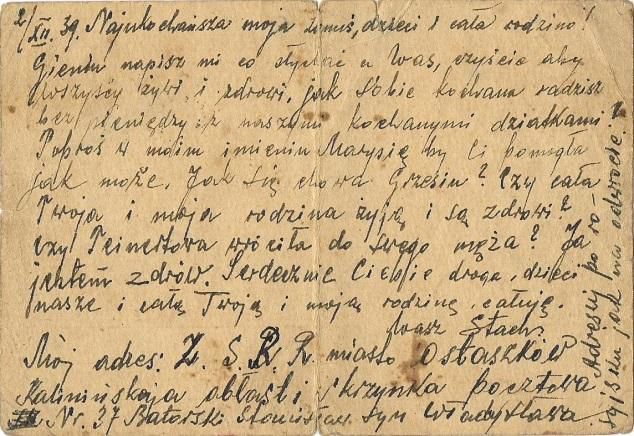 2/XII. 39. Najukochańsza moja żonuś, dzieci i cała rodzino!
Gieniu napisz mi co słychać u Was, czyście aby
wszyscy żywi i zdrowi, jak sobie kochana radzisz
bez pieniędzy z naszymi kochanymi dziatkami.
Poproś w moim imieniu Marysię by Ci pomogła
jak może. Jak się chowa Grześiu? Czy cała
Twoja i moja rodzina żyją i są zdrowi?
Czy Teinertowa wróciła do swego męża? Ja
jestem zdrów. Serdecznie Ciebie droga, dzieci
nasze i całą Twoją i moją rodzinę, całuję.
Wasz Stach.
Mój adres: Z. S. R. R. miasto Ostaszków
Kalinińskaja obłast i skrzynka pocztowa
Nr. 37 Batorski Stanisław syn Władysława.
Adresuj po rosyjsku jak na odwrocie!